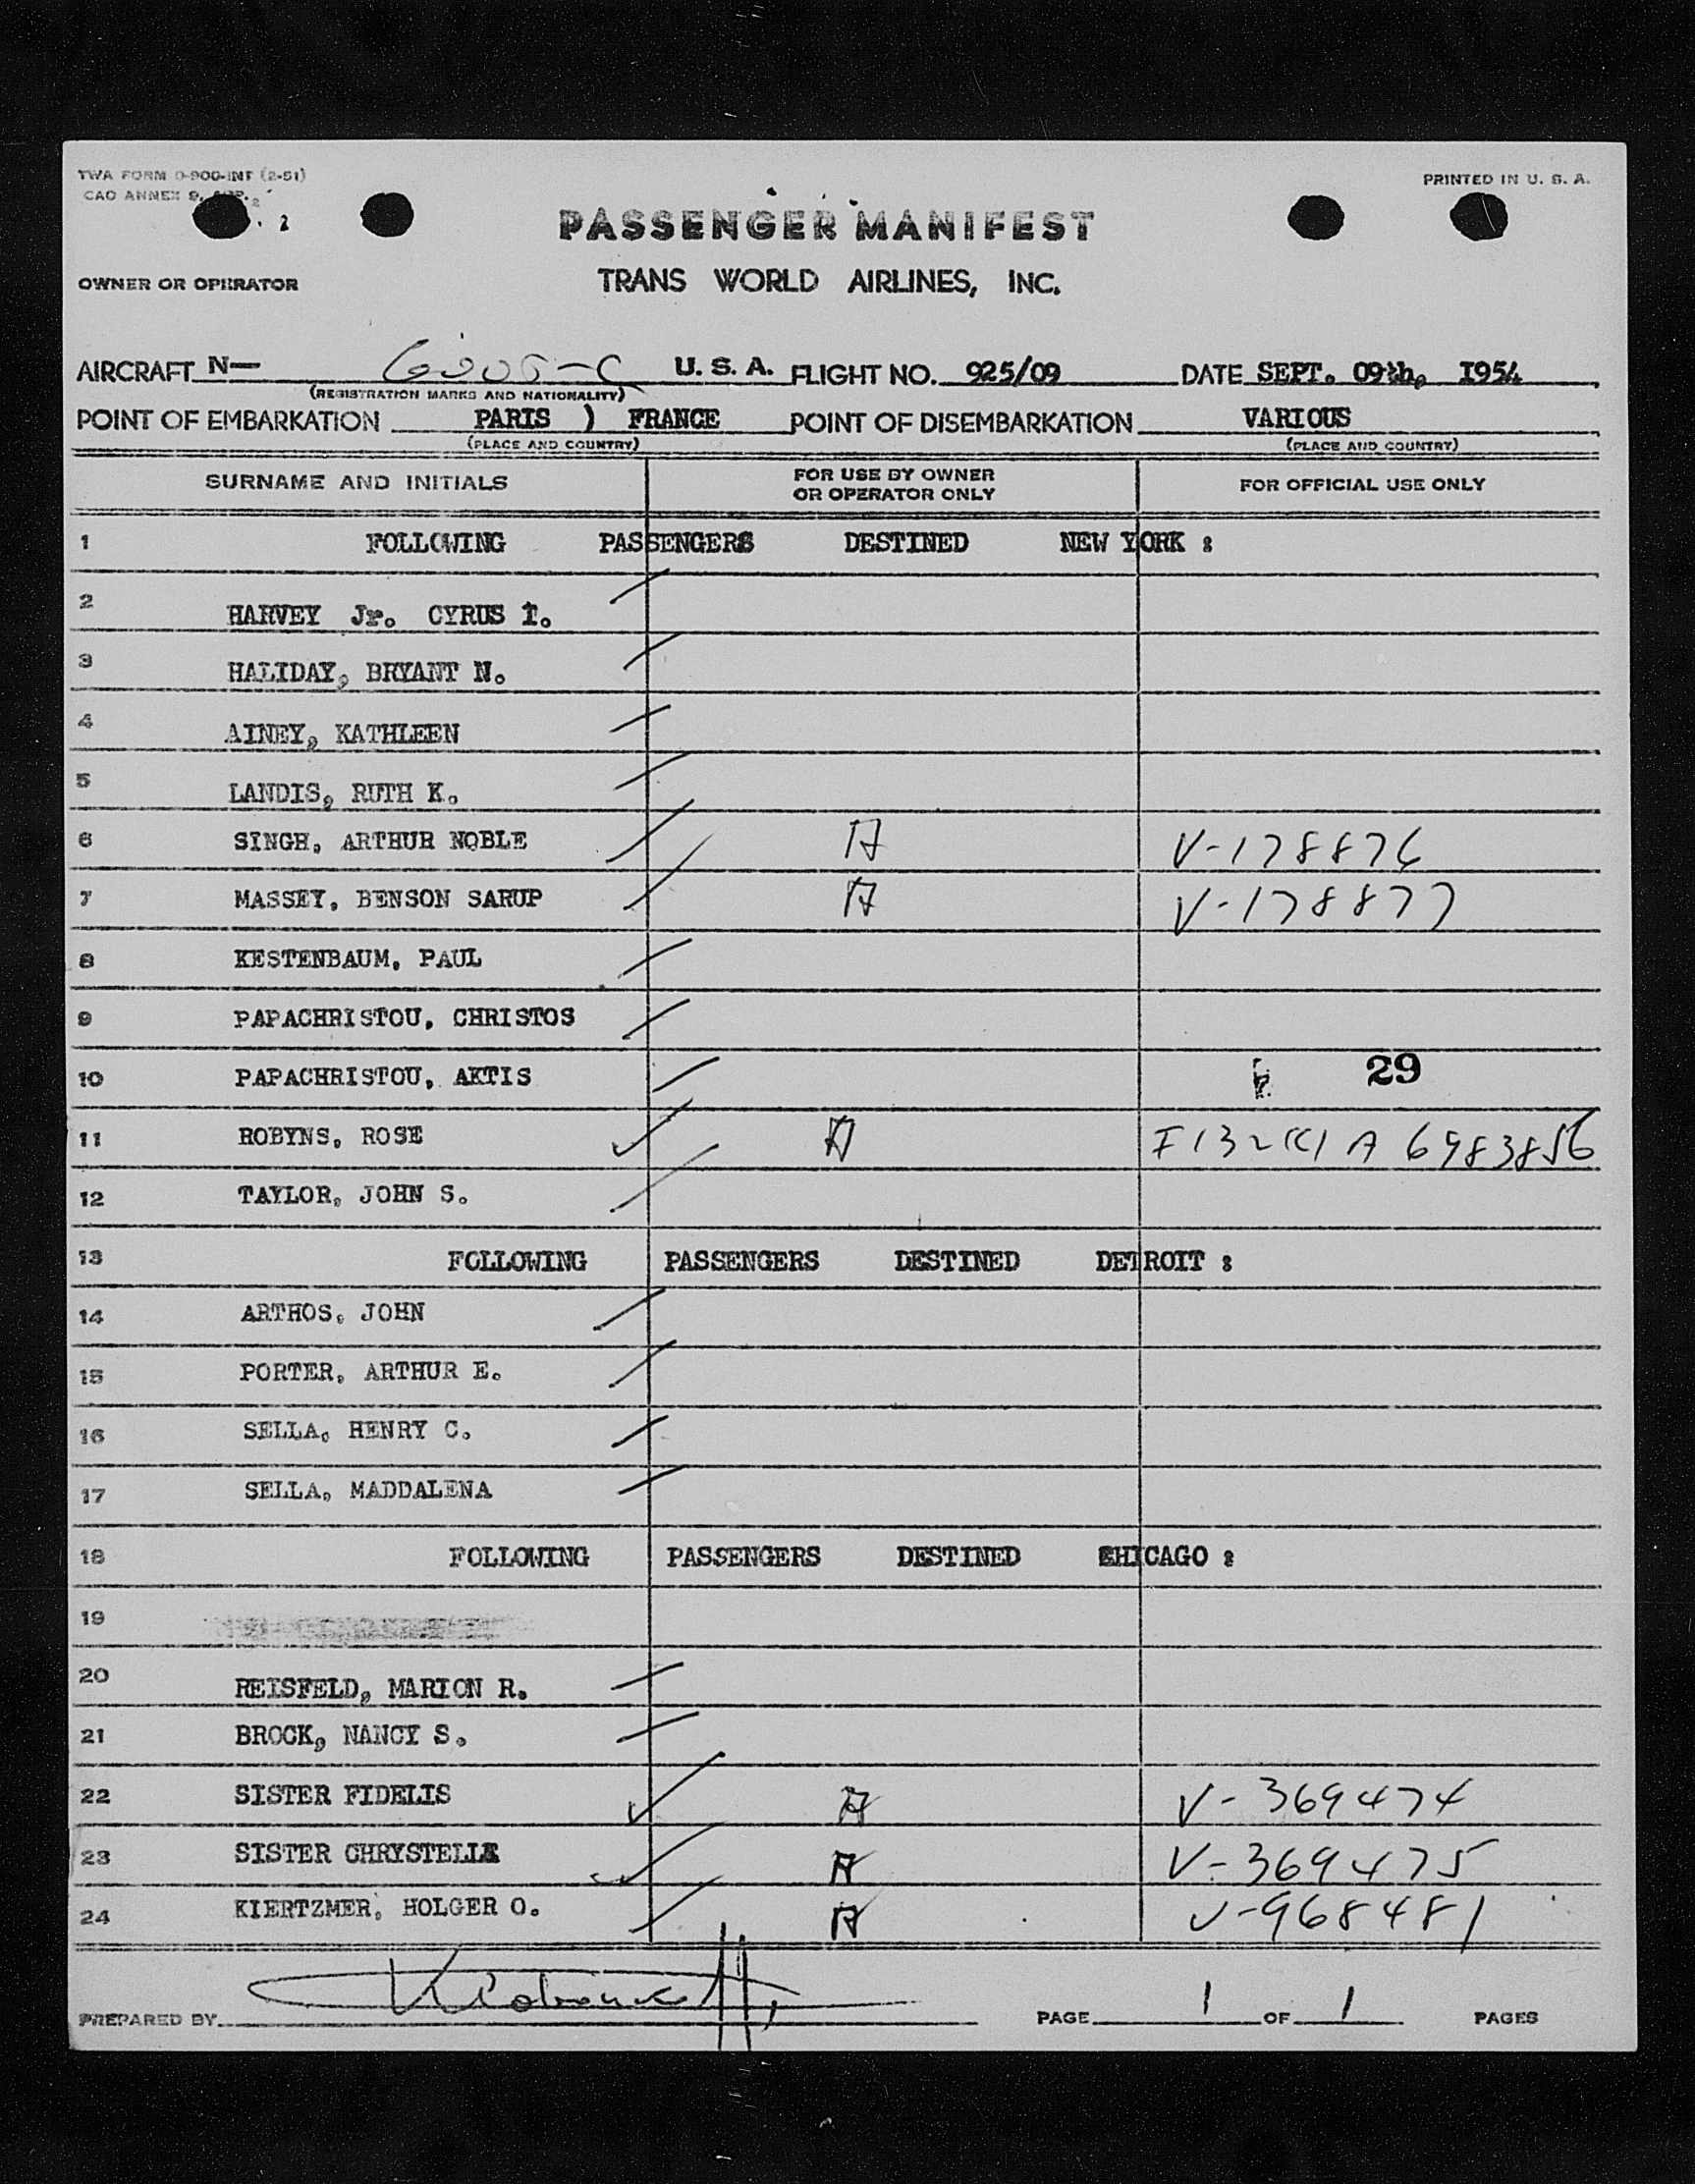 TWA FORM O-900-INT (2-51)
PRINTED IN U. S. A.
CAO ANNEX 9,
2
PASSENGER MANIFEST
OWNER OR OPERATOR TRANS WORLD AIRLINES, INC.
AIRCRAFT N— U. S. A. FLIGHT NO. 925/09 DATE SEPT. 09th, 1954
(REGISTRATION MARKS AND NATIONALITY)
POINT OF EMBARKATION PARIS ) FRANCE POINT OF DISEMBARKATION VARIOUS
(PLACE AND COUNTRY) (PLACE AND COUNTRY)
SURNAME AND INITIALS FOR USE BY OWNER OR OPERATOR ONLY FOR OFFICIAL USE ONLY
1 FOLLOWING PASSENGERS DESTINED NEW YORK :
2 HARVEY Jr. CYRUS I.
3 HALIDAY, BRYANT N.
4 AINEY, KATHLEEN
5 LANDIS, RUTH K.
6 SINGH, ARTHUR NOBLE A V-178876
7 MASSEY, BENSON SARUP A V-178877
8 KESTENBAUM, PAUL
9 PAPACHRISTOU, CHRISTOS
10 PAPACHRISTOU, AKTIS 29
11 ROBYNS, ROSE A A 6983856
12 TAYLOR, JOHN S.
13 FOLLOWING PASSENGERS DESTINED DETROIT :
14 ARTHOS, JOHN
15 PORTER, ARTHUR E.
16 SELLA, HENRY C.
17 SELLA, MADDALENA
18 FOLLOWING PASSENGERS DESTINED CHICAGO :
19
20 REISFELD, MARION R.
21 BROCK, NANCY S.
22 SISTER FIDELIS A V-369474
23 SISTER CHRYSTELLA A V-369475
24 KIERTZMER, HOLGER O. A V-968481
PREPARED BY PAGE 1 OF 1 PAGES